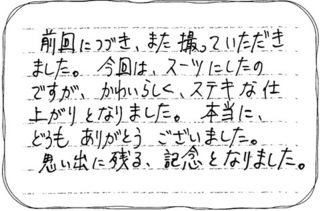 前回につづき、また撮っていただき
ました。今回は、スーツにしたの
ですが、かわいらしく、ステキな仕
上がりとなりました。本当に、
どうもありがとうございました。
思い出に残る、記念となりました。